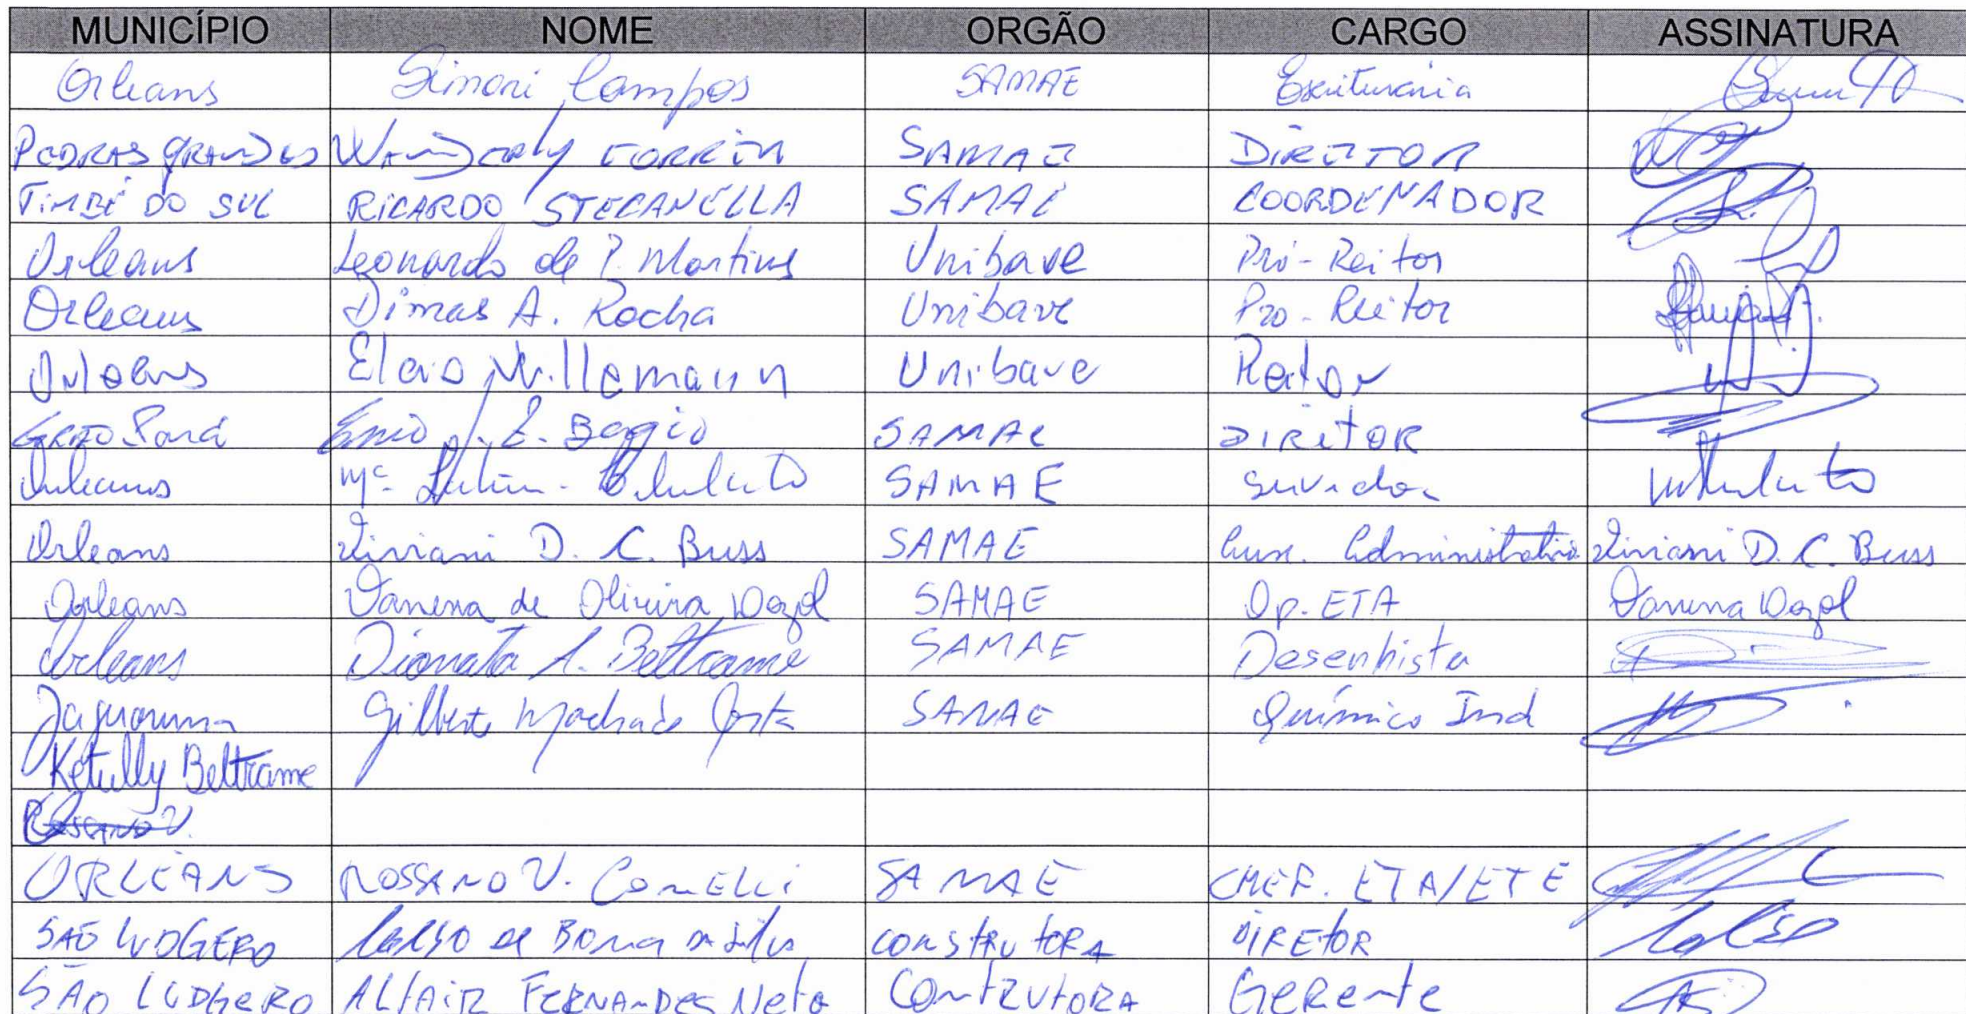 MUNICÍPIO NOME ORGÃO CARGO ASSINATURA
Orleans Simoni Campos SAMAE Escriturária
PEDRAS GRANDES Wanderly CORRÊA SAMAE DIRETOR
TIMBÉ DO SUL RICARDO STECANELLA SAMAE COORDENADOR
Orleans Leonardo de P. Martins Unibave Pró-Reitor
Orleans Dimas A. Rocha Unibave Pro-Reitor
Orleans Elcio Willemann Unibave Reitor
GRÃO Pará Enio E. Boggio SAMAE DIRETOR
Orleans Mª SAMAE Servidor
Orleans Viviani D. C. Buss SAMAE Aux. Administrativo Viviani D. C. Buss
Orleans Vanessa de Oliveira SAMAE Op. ETA
Orleans Dionata A. Beltrame SAMAE Desenhista
Jaguaruna Gilberto Machado Costa SAMAE Químico Ind
Ketully Beltrame
Rossano V.
ORLEANS ROSSANO V. ComELLi SAMAE CHEF. ETA/ETE
SÃO LUDGERO CONSTRUTORA DIRETOR
SÃO LUDGERO ALTAIR FERNANDES Neto CONTRUTORA GeRente